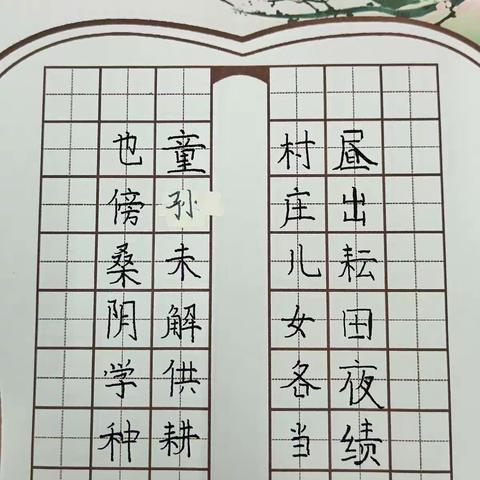 昼出耘田夜绩
村庄儿女各当
童孙未解供耕
也傍桑阴学种